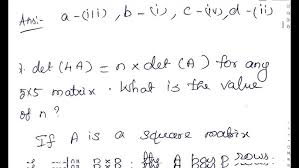 Ans:- a-(iii), b-(i), c-(iv), d-(ii)
7. det (4A) = n × det (A) for any
5×5 matrix. What is the value
of n?
If A is a square matrix